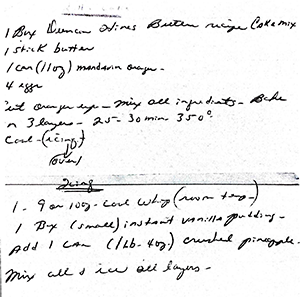 1 Box Duncan Hines Butter recipe Cake mix
1 stick butter
1 can (11 oz) mandarin oranges
4 eggs
Cut oranges up - Mix all ingredients - Bake
in 3 layers - 25-30 min 350°
Cool - (icing)
(over)
Icing
1 - 9 or 10 oz - Cool Whip (room temp -)
1 Box (small) instant vanilla pudding -
Add 1 can (1 lb - 4 oz) crushed pineapple -
Mix all & ice all layers -